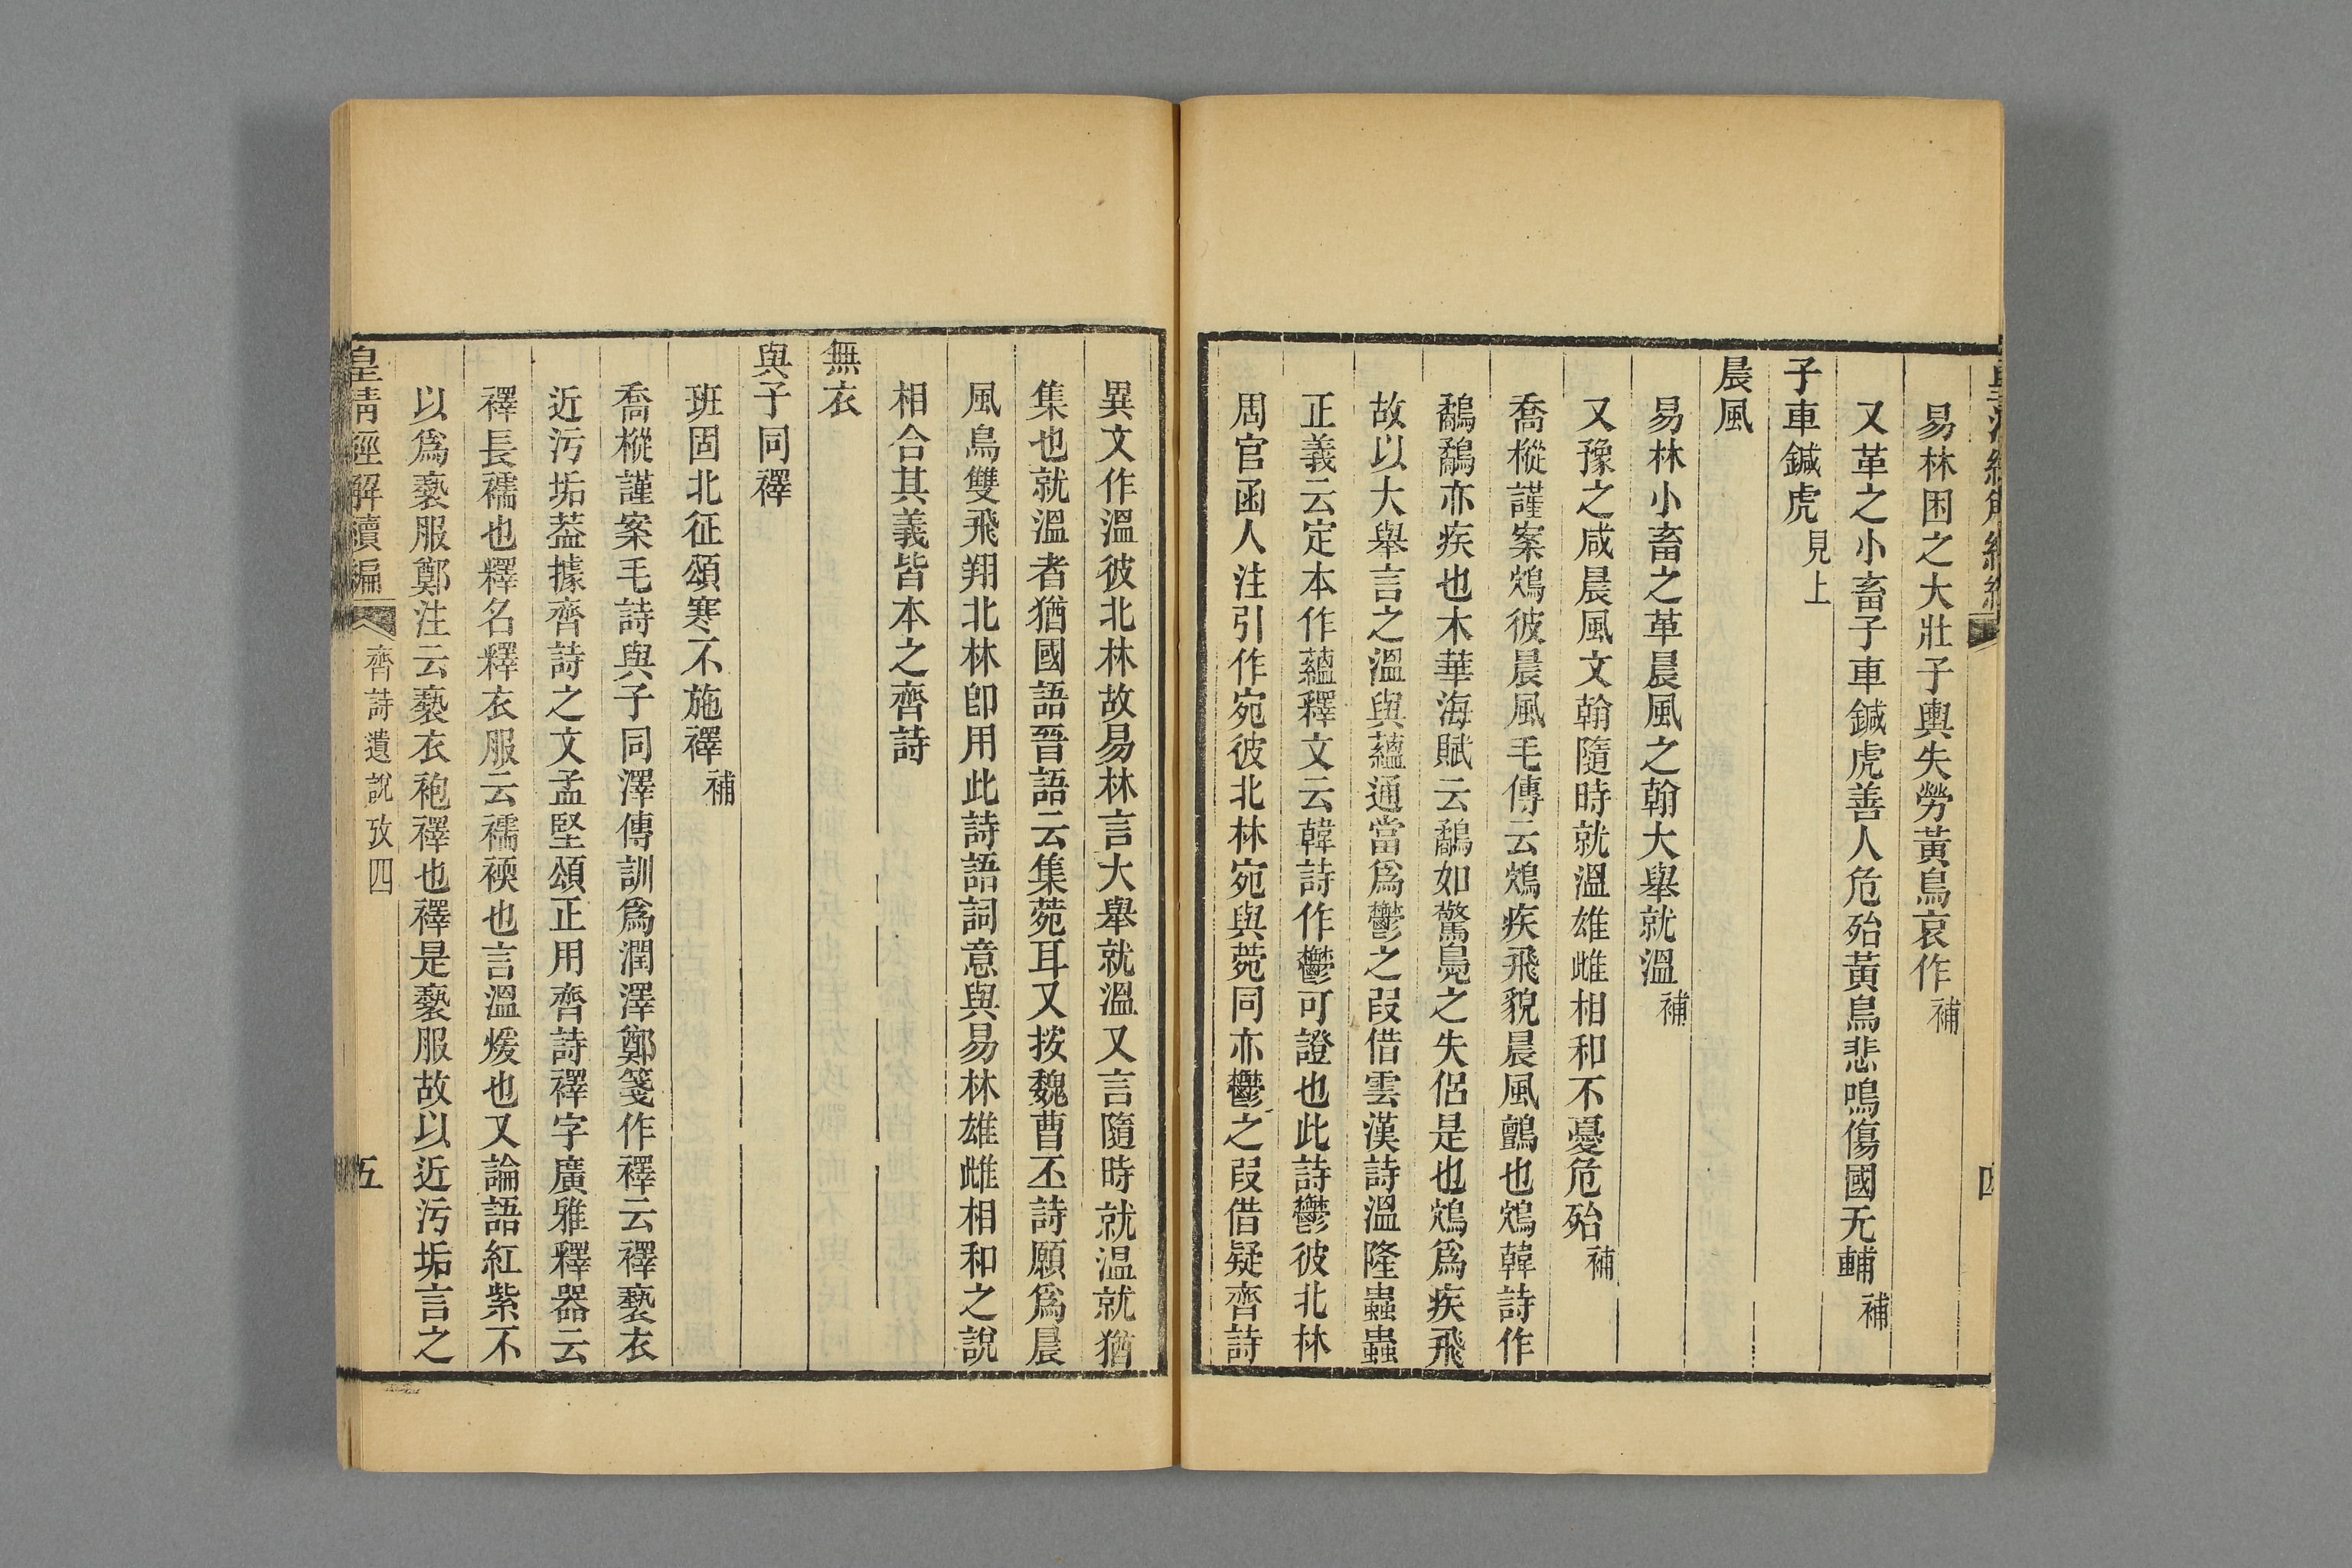 易林困之大壯子輿失勞黃鳥哀作補
又革之小畜子車鍼虎善人危殆黃鳥悲鳴傷國无輔補
子車鍼虎見上
晨風
易林小畜之革晨風之翰大舉就溫補
又豫之咸晨風文翰隨時就溫雄雌相和不憂危殆補
喬樅謹案鴆彼晨風毛傳云鴆疾飛貌晨風鸇也鴆韓詩作
鷸鷸亦疾也木華海賦云鷸如驚鳧之失侶是也鴆為疾飛
故以大舉言之溫與蘊通當爲鬱之叚借雲漢詩溫隆蟲蟲
正義云定本作蘊釋文云韓詩作鬱可證也此詩鬱彼北林
周官函人注引作宛彼北林宛與菀同亦鬱之叚借疑齊詩
異文作溫彼北林故易林言大舉就溫又言隨時就温就猶
集也就溫者猶國語晉語云集菀耳又按魏曹丕詩願爲晨
風鳥雙飛翔北林卽用此詩語詞意與易林雄雌相和之說
相合其義皆本之齊詩
無衣
與子同襗
班固北征頌寒不施襗補
喬樅謹案毛詩與子同澤傳訓爲潤澤鄭箋作襗云襗褻衣
近污垢葢據齊詩之文孟堅頌正用齊詩襗字廣雅釋器云
襗長襦也釋名釋衣服云襦㬉也言溫煖也又論語紅紫不
以爲褻服鄭注云褻衣袍襗也襗是褻服故以近污垢言之
皇清經解續編
齊詩遺說攷四
五